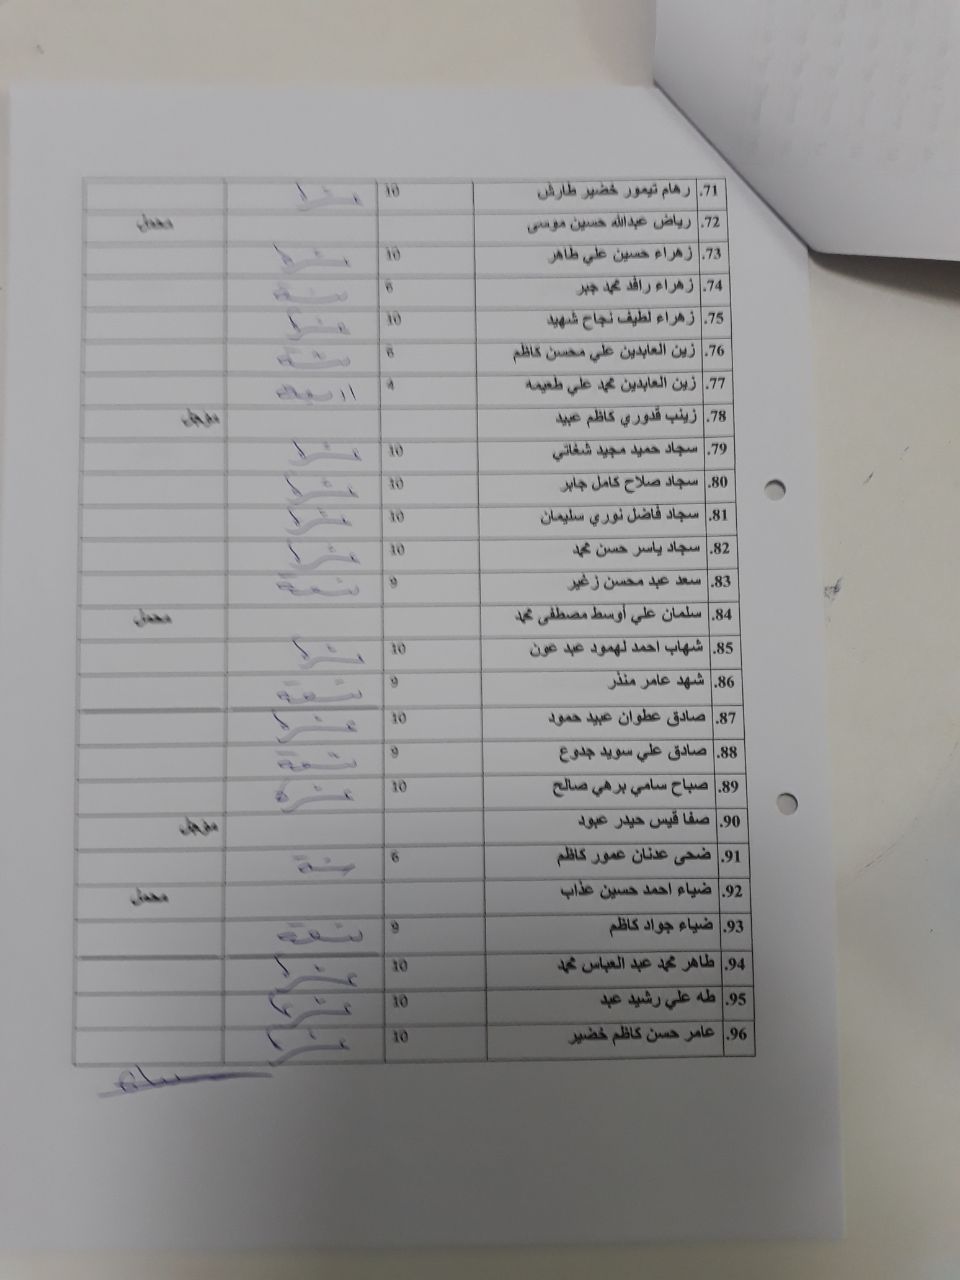 71. رهام تيمور خضير طارش 10 عشرة
72. رياض عبدالله حسين موسى محمل
73. زهراء حسين علي طاهر 10 عشرة
74. زهراء رافد محمد جبر 6 ستة
75. زهراء لطيف نجاح شهيد 10 عشرة
76. زين العابدين علي محسن كاظم 6 ستة
77. زين العابدين محمد علي طعيمه 4 اربعة
78. زينب قدوري كاظم عبيد مؤجل
79. سجاد حميد مجيد شغاتي 10 عشرة
80. سجاد صلاح كامل جابر 10 عشرة
81. سجاد فاضل نوري سليمان 10 عشرة
82. سجاد ياسر حسن محمد 10 عشرة
83. سعد عبد محسن زغير 9 تسعة
84. سلمان علي أوسط مصطفى محمد محمل
85. شهاب احمد لهمود عبد عون 10 عشرة
86. شهد عامر منذر 9 تسعة
87. صادق عطوان عبيد حمود 10 عشرة
88. صادق علي سويد جدوع 9 تسعة
89. صباح سامي برهي صالح 10 عشرة
90. صفا قيس حيدر عبود مؤجل
91. ضحى عدنان عمور كاظم 6 ستة
92. ضياء احمد حسين عذاب محمل
93. ضياء جواد كاظم 9 تسعة
94. طاهر محمد عبد العباس محمد 10 عشرة
95. طه علي رشيد عبد 10 عشرة
96. عامر حسن كاظم خضير 10 عشرة